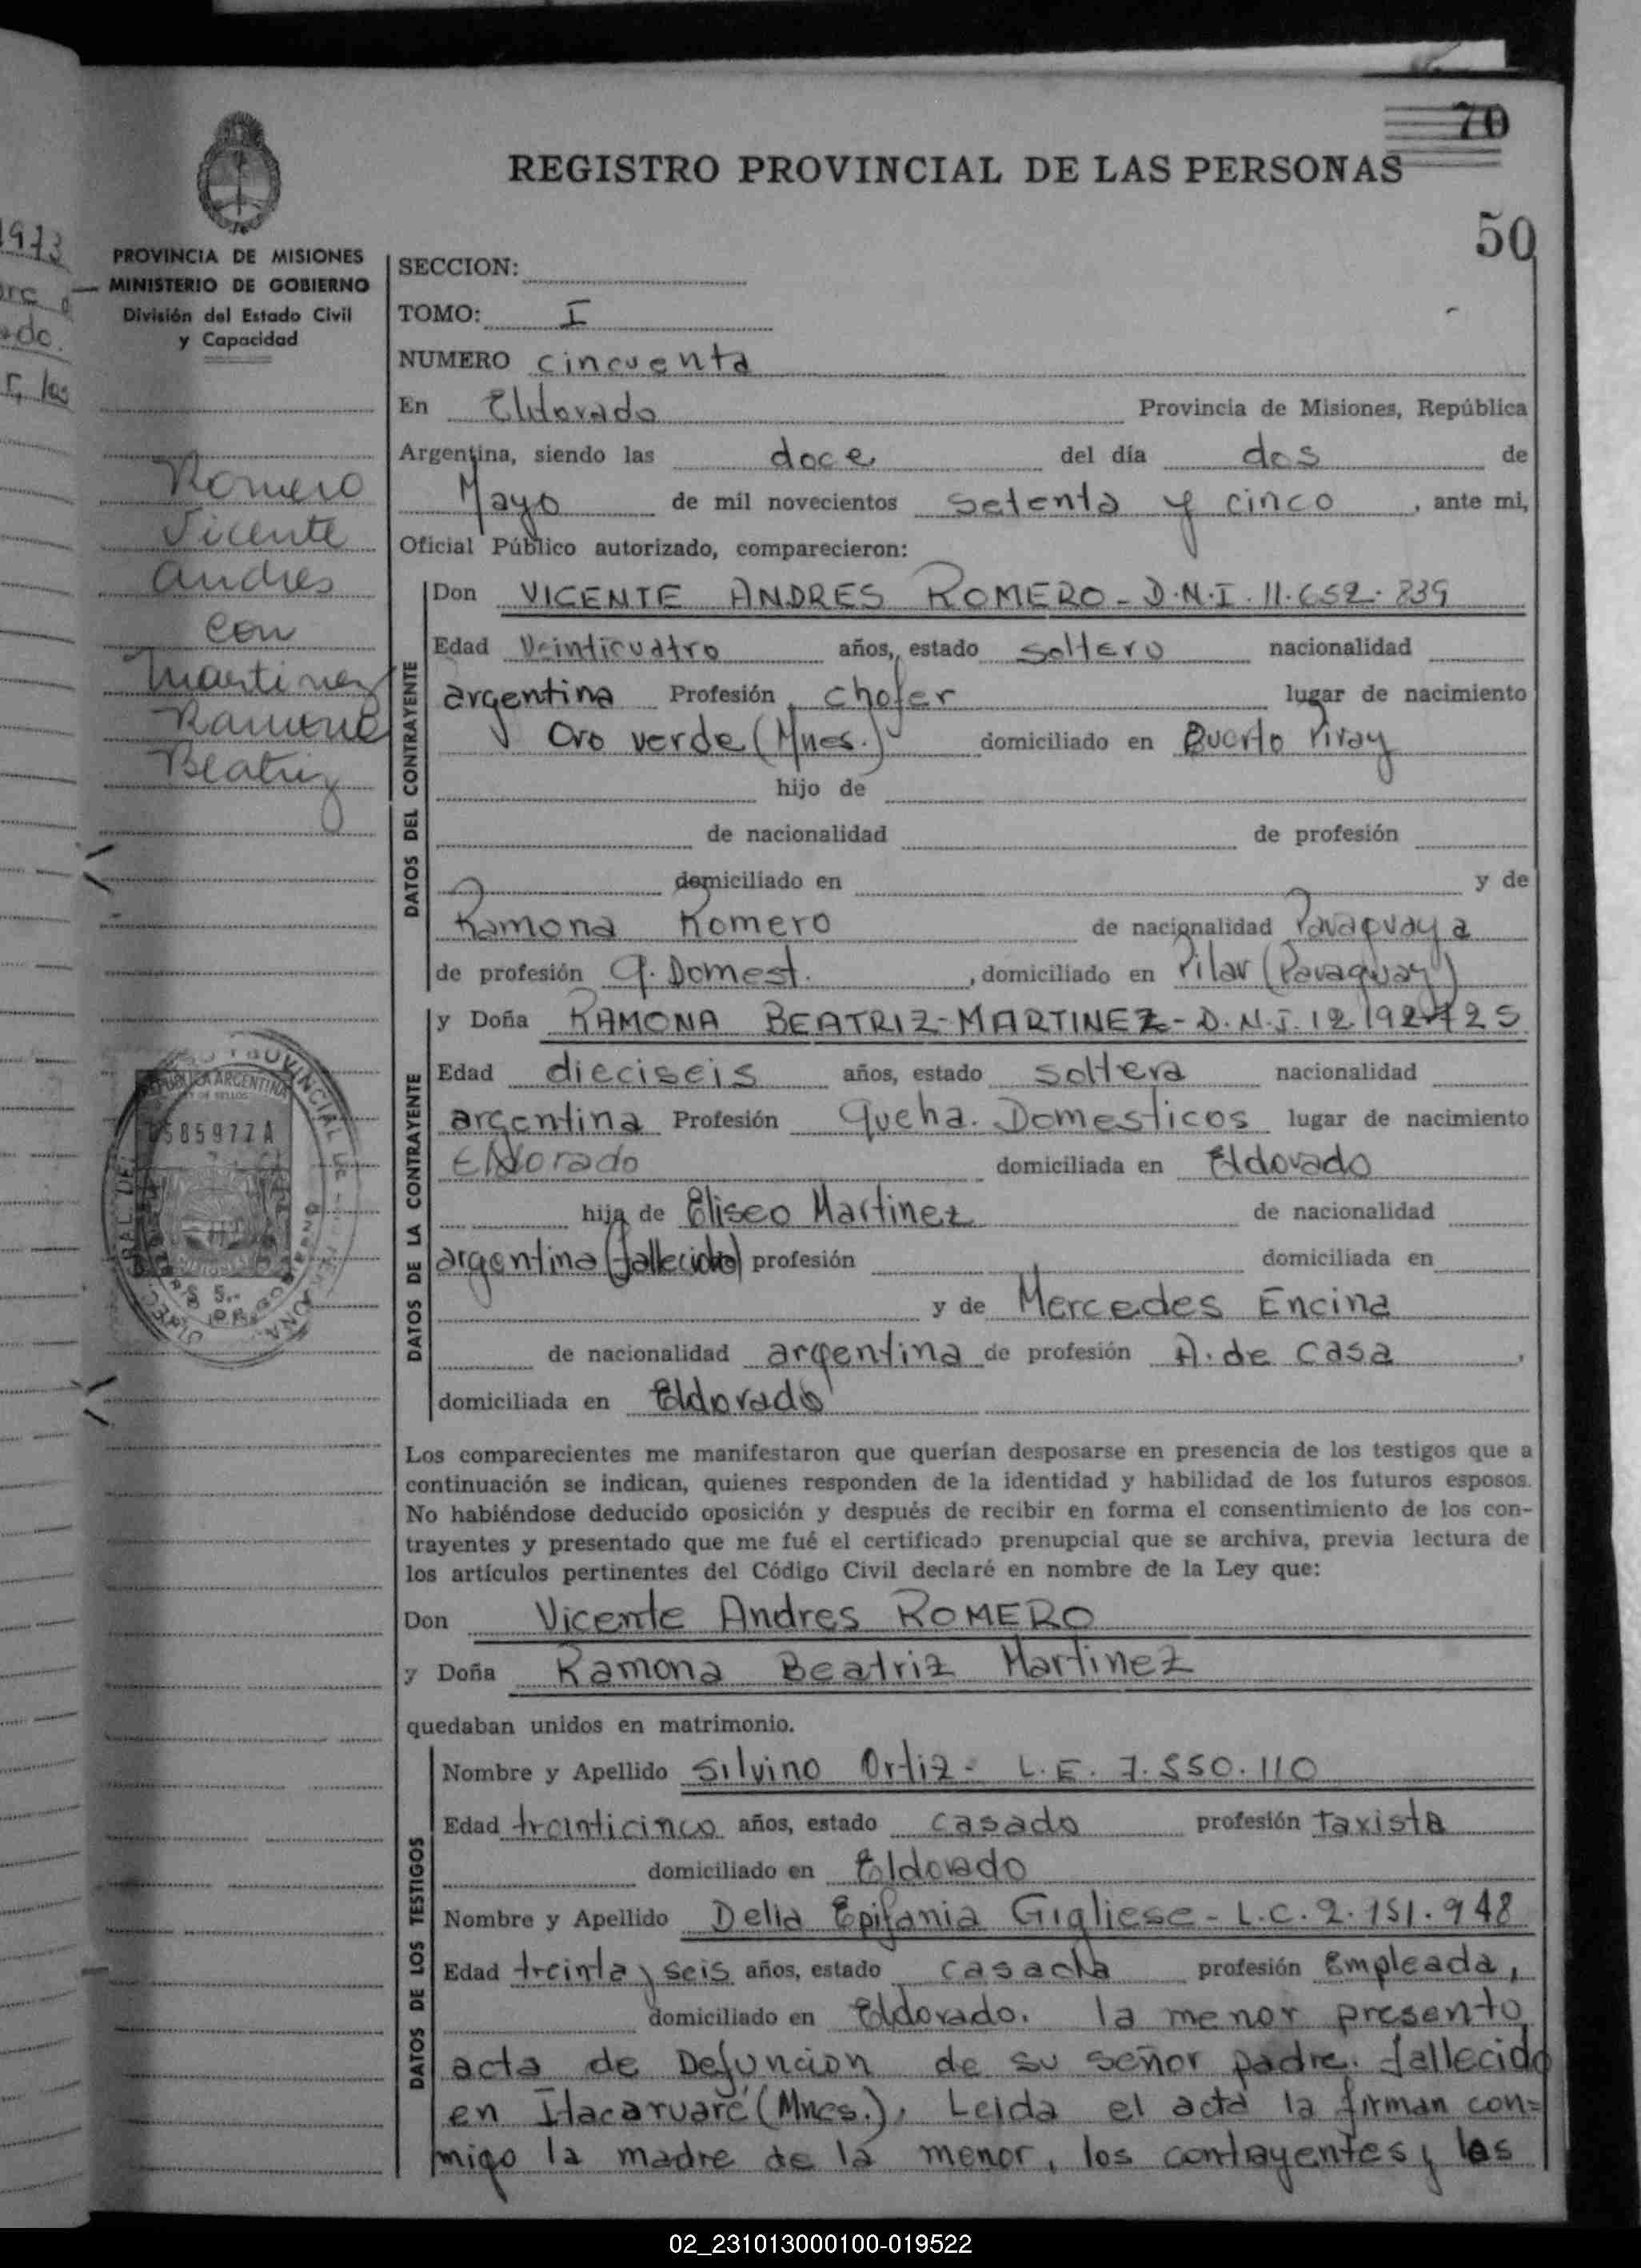 70
REGISTRO PROVINCIAL DE LAS PERSONAS
50
1973
PROVINCIA DE MISIONES
MINISTERIO DE GOBIERNO
División del Estado Civil
y Capacidad
Romero
Vicente
Andres
con
Martinez
Ramona
Beatriz
SECCION:
TOMO: I
NUMERO cincuenta
En Eldorado Provincia de Misiones, República
Argentina, siendo las doce del día dos de
Mayo de mil novecientos setenta y cinco, ante mi,
Oficial Público autorizado, comparecieron:
DATOS DEL CONTRAYENTE
Don VICENTE ANDRES ROMERO - D.N.I. 11.652.839
Edad Veinticuatro años, estado soltero nacionalidad
argentina Profesión chofer lugar de nacimiento
Oro verde (Mnes.) domiciliado en Puerto Piray
hijo de
de nacionalidad de profesión
domiciliado en y de
Ramona Romero de nacionalidad Paraguaya
de profesión Q. Domest. , domiciliado en Pilar (Paraguay)
DATOS DE LA CONTRAYENTE
y Doña RAMONA BEATRIZ - MARTINEZ - D.N.I. 12.192.
Edad dieciseis años, estado soltera nacionalidad
argentina Profesión Queha. Domesticos lugar de nacimiento
Eldorado domiciliada en Eldorado
hija de Eliseo Martinez de nacionalidad
argentina (fallecido) profesión domiciliada en
y de Mercedes Encina
de nacionalidad argentina de profesión A. de casa ,
domiciliada en Eldorado
REPUBLICA ARGENTINA
LEY DE SELLOS
585977A
$ 5.-
Los comparecientes me manifestaron que querían desposarse en presencia de los testigos que a
continuación se indican, quienes responden de la identidad y habilidad de los futuros esposos.
No habiéndose deducido oposición y después de recibir en forma el consentimiento de los con-
trayentes y presentado que me fué el certificado prenupcial que se archiva, previa lectura de
los artículos pertinentes del Código Civil declaré en nombre de la Ley que:
Don Vicente Andres ROMERO
y Doña Ramona Beatriz Martinez
quedaban unidos en matrimonio.
DATOS DE LOS TESTIGOS
Nombre y Apellido Silvino Ortiz - L.E. 7.550.110
Edad treinticinco años, estado casado profesión taxista
domiciliado en Eldorado
Nombre y Apellido Delia Epifania Gigliese - L.C. 2.151.948
Edad treinta y seis años, estado casada profesión Empleada,
domiciliado en Eldorado. la menor presento
acta de Defuncion de su señor padre. fallecido
en Itacaruaré (Mnes.), Leida el acta la firman con=
migo la madre de la menor, los contrayentes y los
02_231013000100-019522